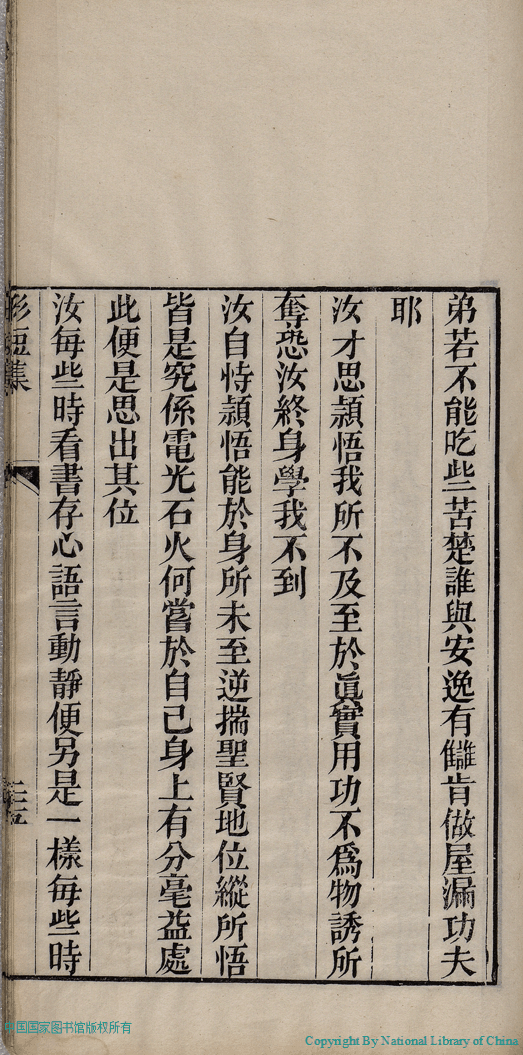 弟若不能吃些苦楚誰與安逸有讎肯做屋漏功夫
耶
汝才思頴悟我所不及至於眞實用功不爲物誘所
奪恐汝終身學我不到
汝自恃頴悟能於身所未至逆揣聖賢地位縱所悟
皆是究係電光石火何嘗於自己身上有分毫益處
此便是思出其位
汝每些時看書存心語言動靜便另是一樣每些時
短集
国国家图书馆版权所有
Copyright By National Library of China